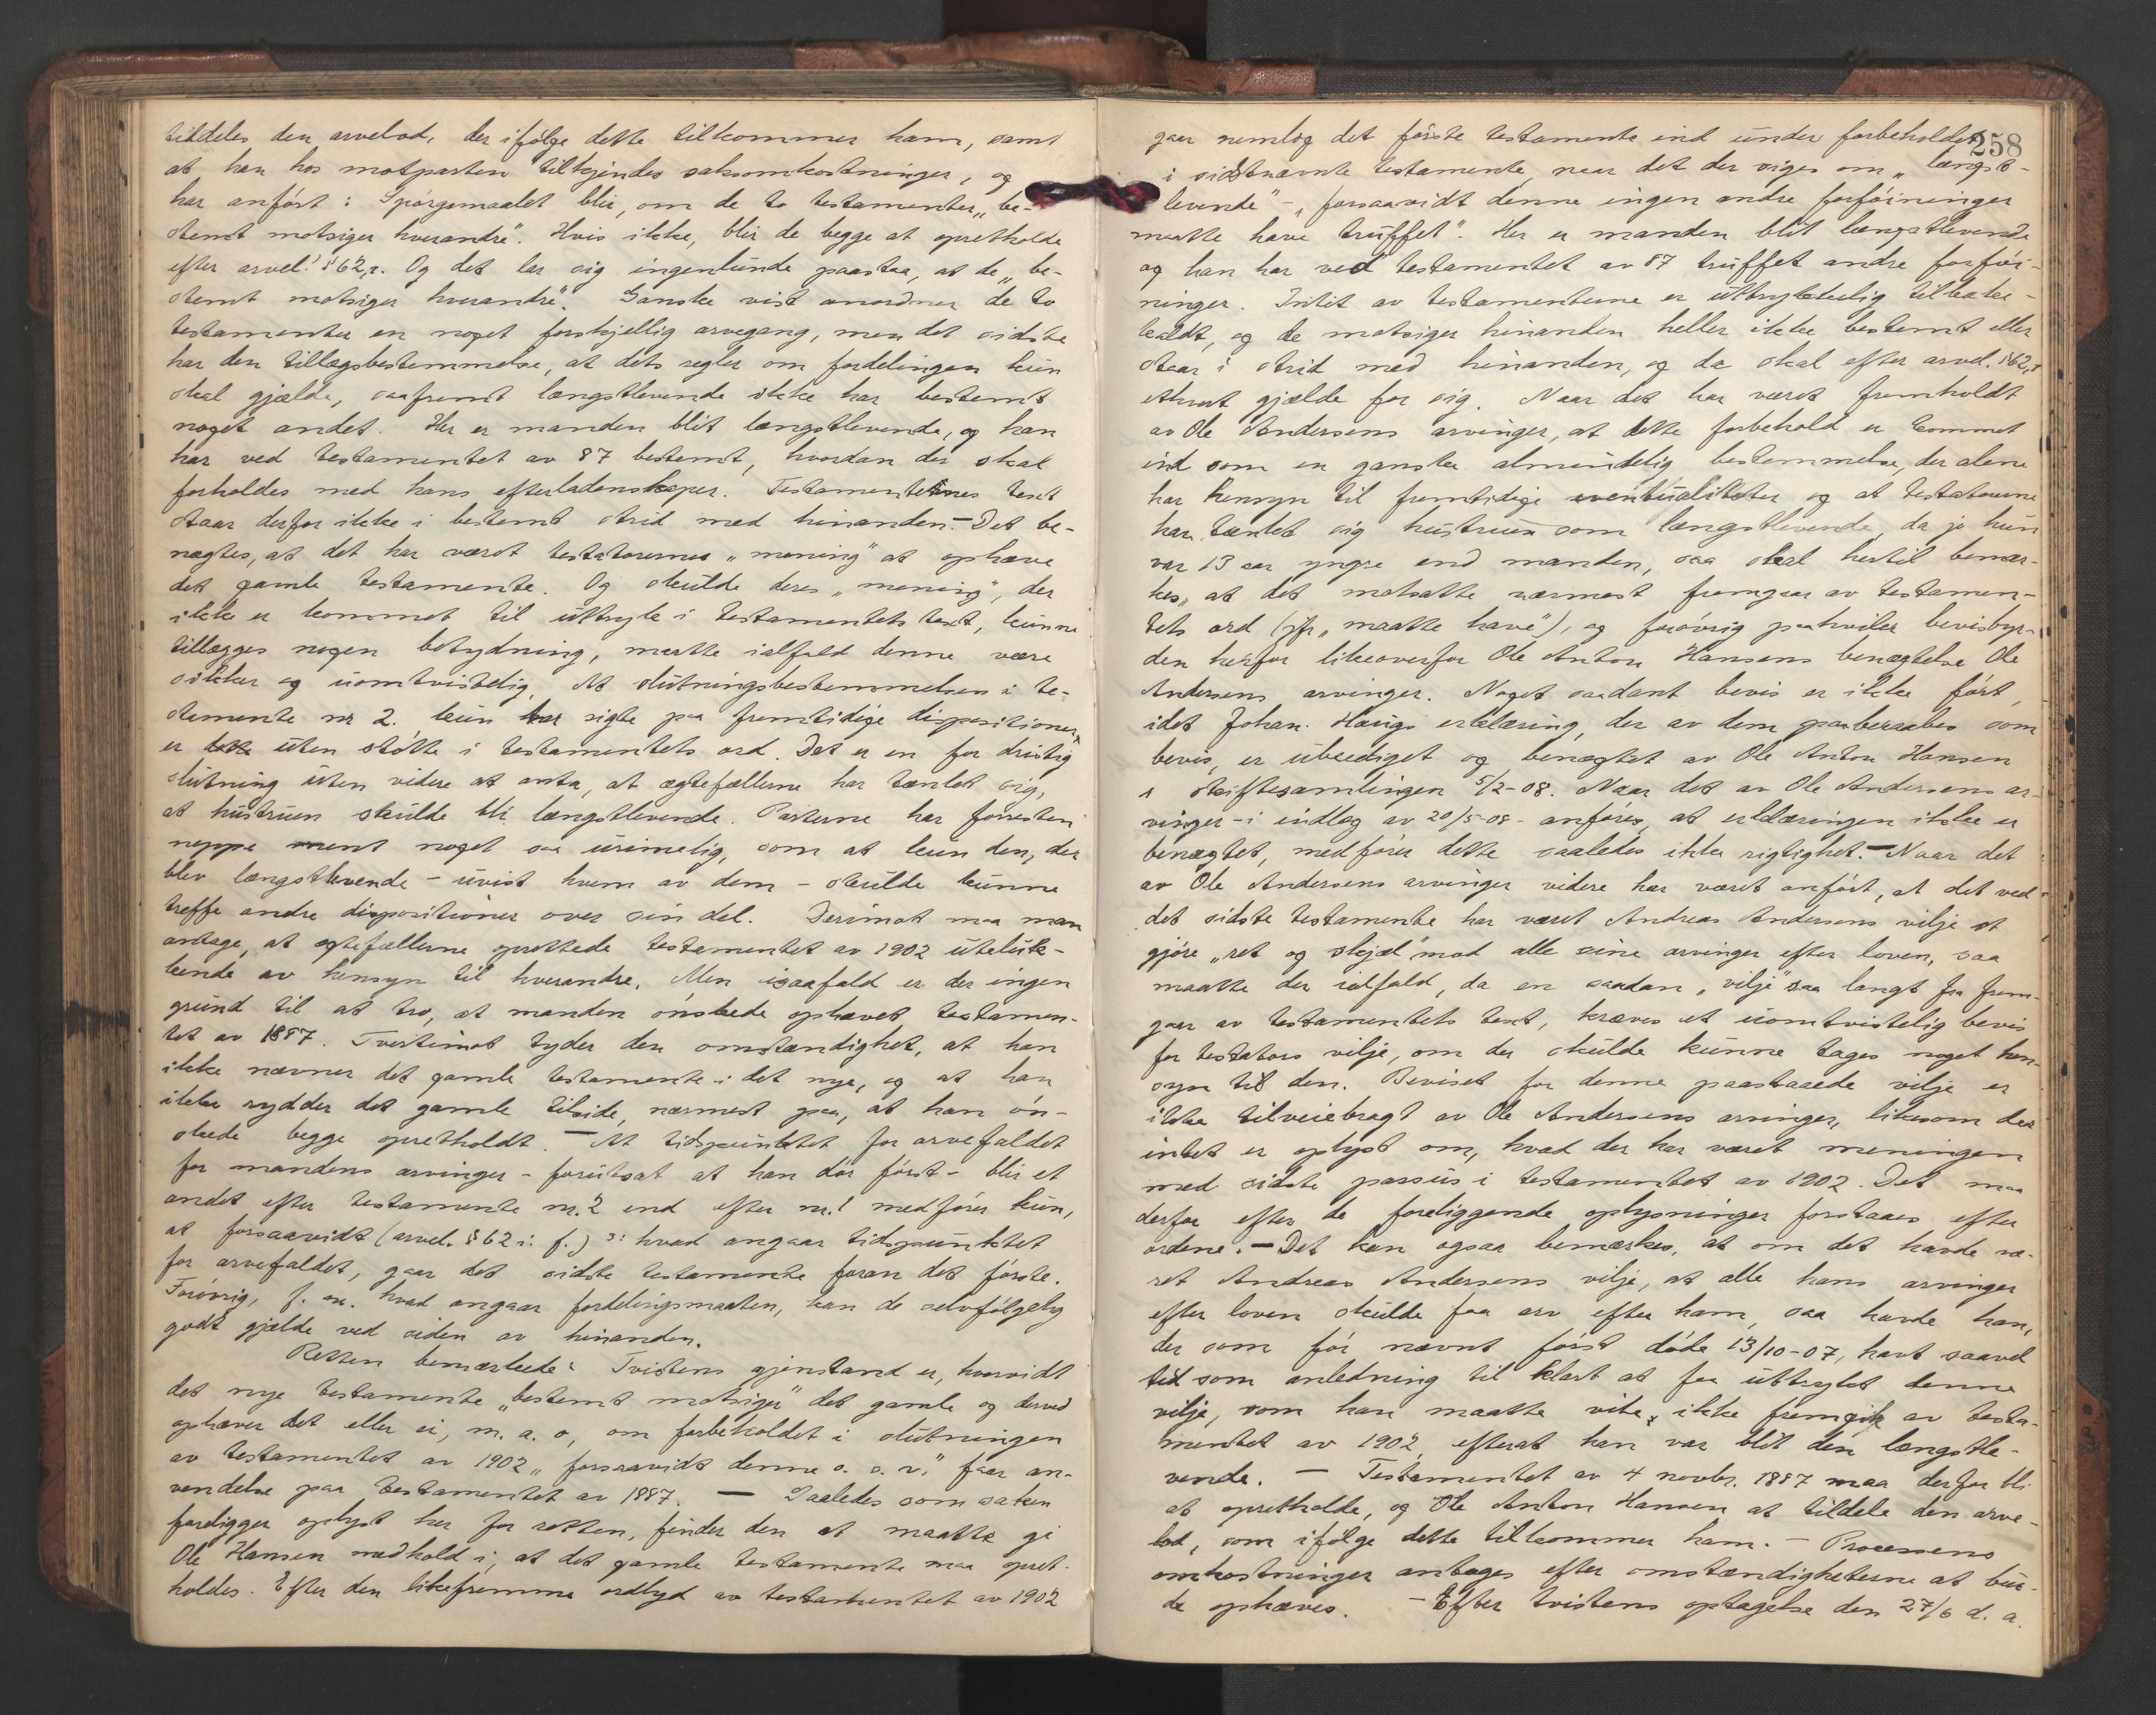 tildeles den arvelod, der ifølge dette tilkommer ham, samt
at han hos motparten tilkjendes saksomkostninger, og
har anført: Spørgsmaalet blir, om de to testamenter „be-
stemt motsiger hverandre“. Hvis ikke, blir de begge at opretholde
efter arvel. § 62,1. Og det lar sig ingenlunde paastaa, at de „be-
stemt motsiger hverandre“. Ganske vist anordner de to
testamenter en noget forskjellig arvegang, men det sidste
har den tillægsbestemmelse, at dets regler om fordelingen kun
skal gjælde, saafremt længstlevende ikke har bestemt
noget andet. Her er manden blit længstlevende, og han
har ved testamentet av 87 bestemt, hvordan der skal
forholdes med hans efterladenskaper. Testamenternes text
staar derfor ikke i bestemt strid med hinanden. – Det be-
nægtes, at det har været testatorernes „mening“ at ophæve
det gamle testamente. Og skulde deres „mening“, der
ikke er kommet til uttryk i testamentets text, kunne
tillægges nogen betydning, maatte ialfald denne være
sikker og uomtvistelig. At slutningsbestemmelsen i te-
stamente nr 2. kun har sigte paa fremtidige dispositioner,
er uten støtte i testamentets ord. Det er en for dristig
slutning uten videre at anta, at ægtefællerne har tænkt sig,
at hustruen skulde bli længstlevende. Parterne har forresten
neppe ment noget saa urimelig, som at kun den, der
blev længstlevende – uvist hvem av dem – skulde kunne
treffe andre dispositioner over sin del. Derimot maa man
antage, at egtefællerne oprettede testamentet av 1902 uteluk-
kende av hensyn til hverandre. Men isaafald er der ingen
grund til at tro, at manden ønskede ophævet testamen-
tet av 1887. Tvertimot tyder den omstændighet, at han
ikke nævner det gamle testamente i det nye, og at han
ikke rydder det gamle tilside, nærmest paa, at han øn-
skede begge opretholdt. – At tidspunktet for arvefaldet
for mandens arvinger – forutsat at han dør først – blir et
andet efter testamente nr. 2 end efter nr. 1 medfører kun,
at forsaavidt (arvel. § 62 i. f.) ɔ: hvad angaar tidspunktet
for arvefaldet, gaar det sidste testamente foran det første.
Forøvrig, f. ex. hvad angaar fordelingsmaaten, kan de selvfølgelig
godt gjælde ved siden av hinanden.
Retten bemærkede: Tvistens gjenstand er, hvorvidt
det nye testamente „bestemt motsiger“ det gamle og derved
ophæver det eller ei, m. a. o., om forbeholdet i slutningen
av testamentet av 1902 „forsaavidt denne o. s. v.“ faar an-
vendelse paa testamentet av 1887. – Saaledes som saken
foreligger oplyst her for retten, finder den at maatte gi
Ole Hansen medhold i, at det gamle testamente maa opret-
holdes. Efter den likefremme ordlyd av testamentet av 1902
258
gaar nemlig det første testamente ind under forbeholdet
i sidstnævnte testamente, naar det der siges om „længst-
levende“ – „forsaavidt denne ingen andre forføininger
maatte have truffet“. Her er manden blit længstlevende
og han har ved testamentet av 87 truffet andre forføi-
ninger. Intet av testamenterne er uttrykkelig tilbake-
kaldt, og de motsiger hinanden heller ikke bestemt eller
staar i strid med hinanden, og da skal efter arvel. § 62,1
ethvert gjælde for sig. Naar det har været fremholdt
av Ole Andersens arvinger, at dette forbehold er kommet
ind som en ganske almindelig bestemmelse, der alene
har hensyn til fremtidige eventualiteter og at testatorerne
har tænkt sig hustruen som længstlevende, da jo hun
var 13 aar yngre end manden, saa skal hertil bemær-
kes, at det motsatte nærmest fremgaar av testamen-
tets ord (jfr „maatte have“), og forøvrig paahviler bevisbyr-
den herfor likeoverfor Ole Anton Hansens benægtelse Ole
Andersens arvinger. Noget saadant bevis er ikke ført,
idet Johan Haugs erklæring, der av dem paaberaabes som
bevis, er ubeediget og benægtet av Ole Anton Hansen
i skiftesamlingen 5/2-08. Naar det av Ole Andersens ar-
vinger – i indlæg av 20/5-08 – anføres, at erklæringen ikke er
benægtet, medfører dette saaledes ikke rigtighet. – Naar det
av Ole Andersens arvinger videre har været anført, at det ved
det sidste testamente har været Andreas Andersens vilje at
gjøre „ret og skjæl“ mod alle sine arvinger efter loven, saa
maatte der ialfald, da en saadan „vilje“ saa langt fra frem-
gaar av testamentets text, kræves et uomtvistelig bevis
for testators vilje, om der skulde kunne tages noget hen-
syn til den. Beviset for denne paastaaede vilje er
ikke tilveiebragt av Ole Andersens arvinger, likesom der
intet er oplyst om, hvad der har været meningen
med sidste passus i testamentet av 1902. Det maa
derfor efter de foreliggende oplysninger forstaaes efter
ordene. – Det kan ogsaa bemærkes, at om det havde væ-
ret Andreas Andersens vilje, at alle hans arvinger
efter loven skulde faa arv efter ham, saa havde han,
der som før nævnt først døde 13/10-07, havt saavel
tid som anledning til klart at faa uttrykt denne
vilje, som han maatte vite, ikke fremgik av testa-
mentet av 1902, efterat han var blit den længstle-
vende. – Testamentet av 4 novbr. 1887 maa derfor bli
at opretholde, og Ole Anton Hansen at tildele den arve-
lod, som ifølge dette tilkommer ham. – Processens
omkostninger antages efter omstændigheterne at bur-
de ophæves. – Efter tvistens optagelse den 27/6 d. a.